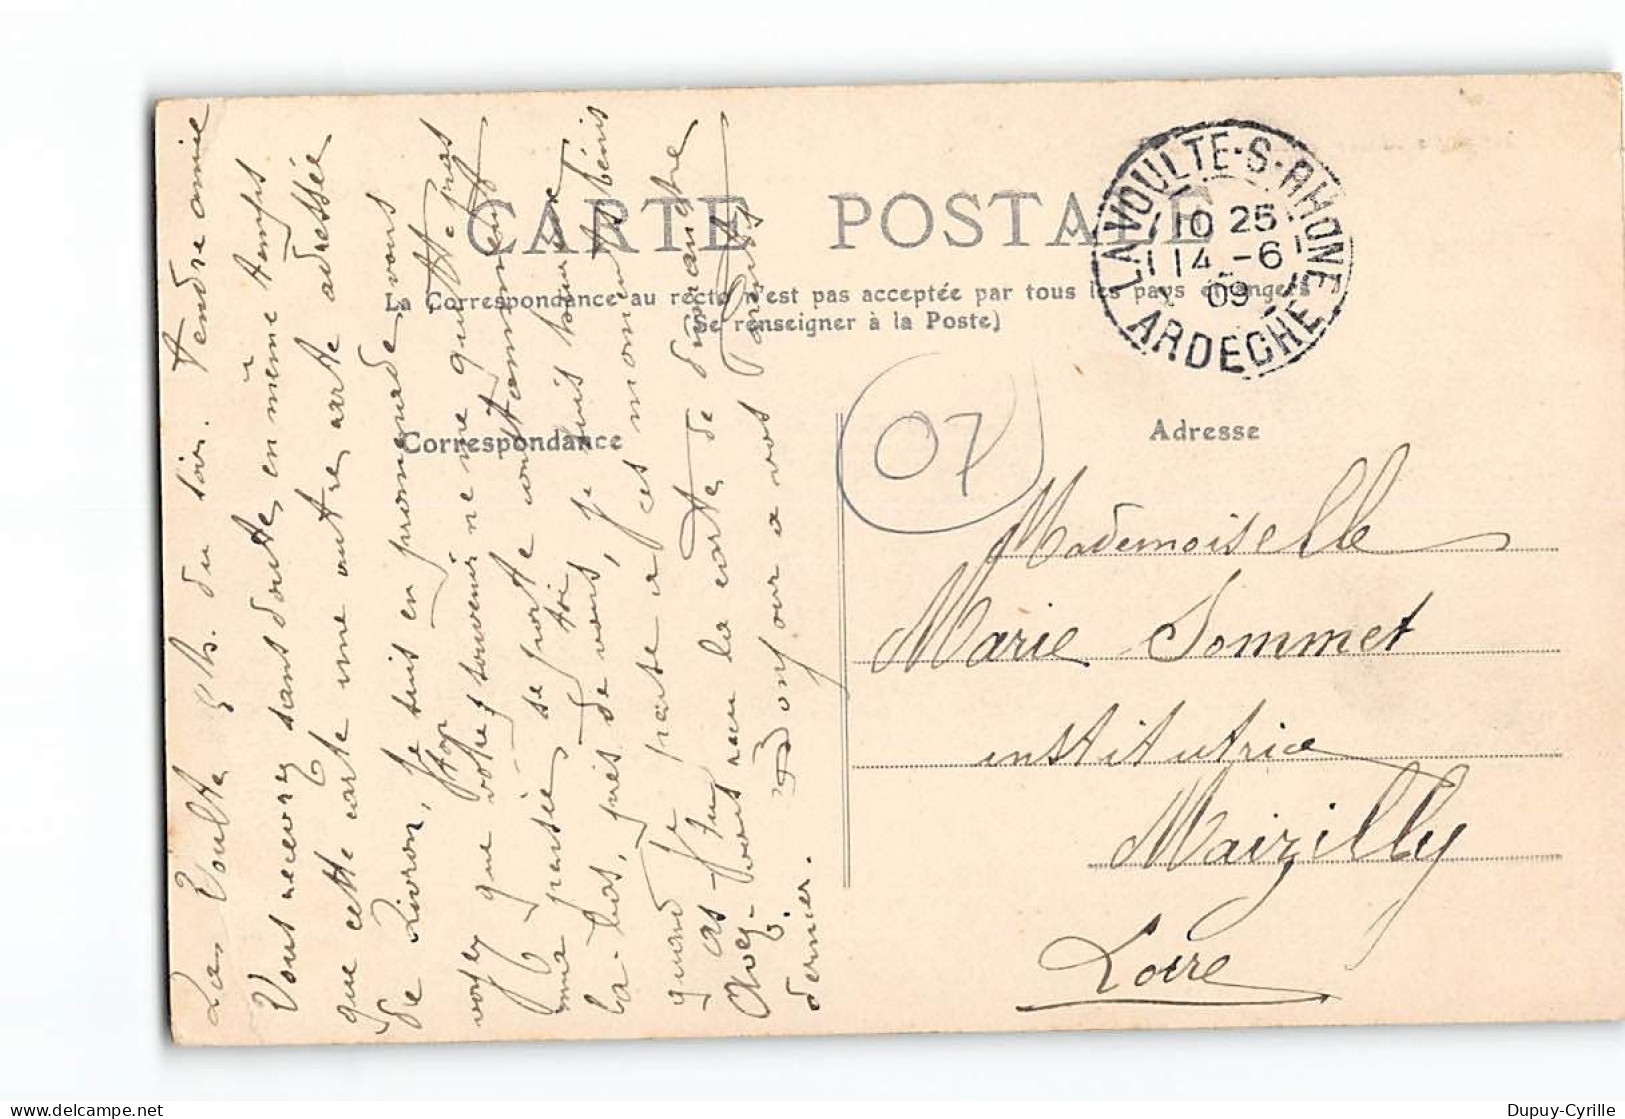 CARTE POSTALE
La Correspondance au recto n'est pas acceptée par tous les pays étrangers
(Se renseigner à la Poste)
Correspondance
Adresse
LA VOULTE-S-RHONE
10 25
14 -6
09
ARDECHE
07
Mademoiselle
Marie Sommet
institutrice
Maizilly
Loire
La Voulte 9 h. du soir. Tendre amie
Vous recevrez sans doute, en même temps
que cette carte une autre carte adressée
de Livron, je suis en promenade, vous
voyez que votre souvenir ne me quitte pas
ton
ma pensée, se porte constamment
là-bas, près de vous, je suis heureux
toi
quand je pense à ces moments bénis
as-tu
Avez-vous reçu la carte de dimanche
dernier. Bonjour à vos parents